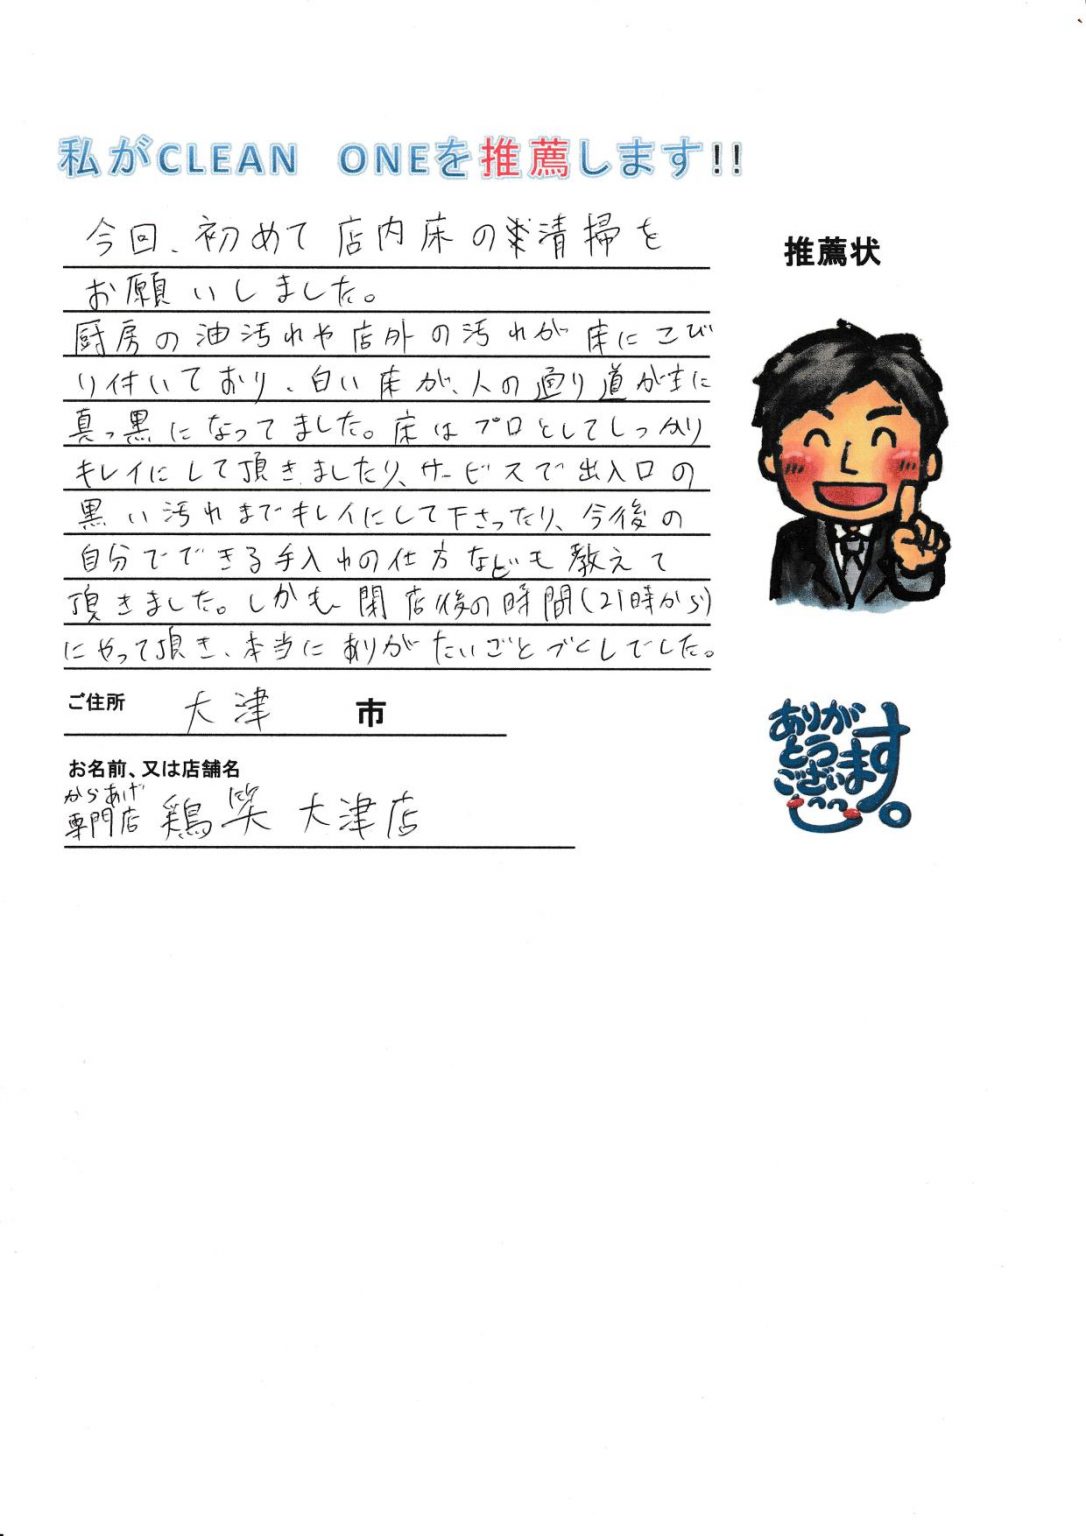 私がCLEAN ONEを推薦します!!
推薦状
今回、初めて店内床の清掃を
お願いしました。
厨房の油汚れや店外の汚れが床にこび
り付いており、白い床が、人の通り道がまに
真っ黒になってました。床はプロとしてしっかり
キレイにして頂きましたり、サービスで出入口の
黒い汚れまでキレイにして下さったり、今後の
自分でできる手入れの仕方なども教えて
頂きました。しかも閉店後の時間(21時から)
にやって頂き、本当にありがたいごとづくしでした。
ご住所 大津 市
お名前、又は店舗名
からあげ
専門店 鶏笑 大津店
ありが
とう
ござい
ます。